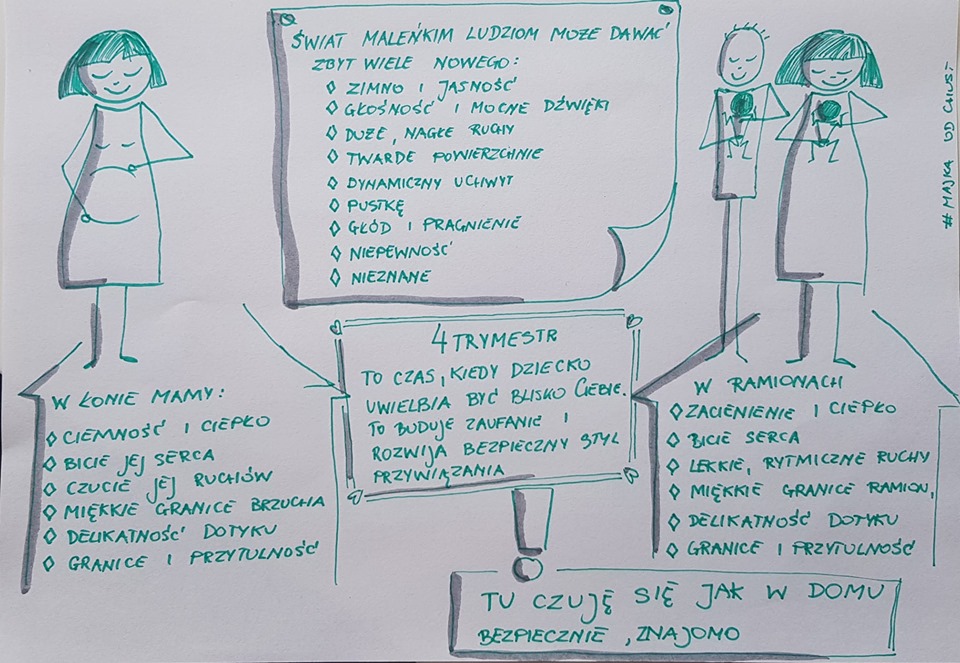 ŚWIAT MALEŃKIM LUDZIOM MOŻE DAWAĆ
ZBYT WIELE NOWEGO:
◊ ZIMNO I JASNOŚĆ
◊ GŁOŚNOŚĆ I MOCNE DŹWIĘKI
◊ DUŻE, NAGŁE RUCHY
◊ TWARDE POWIERZCHNIE
◊ DYNAMICZNY UCHWYT
◊ PUSTKĘ
◊ GŁÓD I PRAGNIENIE
◊ NIEPEWNOŚĆ
◊ NIEZNANE
# MAJKA OD CHUST
4 TRYMESTR
TO CZAS, KIEDY DZIECKO
UWIELBIA BYĆ BLISKO CIEBIE.
TO BUDUJE ZAUFANIE I
ROZWIJA BEZPIECZNY STYL
PRZYWIĄZANIA
W ŁONIE MAMY:
◊ CIEMNOŚĆ I CIEPŁO
◊ BICIE JEJ SERCA
◊ CZUCIE JEJ RUCHÓW
◊ MIĘKKIE GRANICE BRZUCHA
◊ DELIKATNOŚĆ DOTYKU
◊ GRANICE I PRZYTULNOŚĆ
W RAMIONACH
◊ ZACIENIENIE I CIEPŁO
◊ BICIE SERCA
◊ LEKKIE, RYTMICZNE RUCHY
◊ MIĘKKIE GRANICE RAMION,
◊ DELIKATNOŚĆ DOTYKU
◊ GRANICE I PRZYTULNOŚĆ
TU CZUJĘ SIĘ JAK W DOMU
BEZPIECZNIE, ZNAJOMO